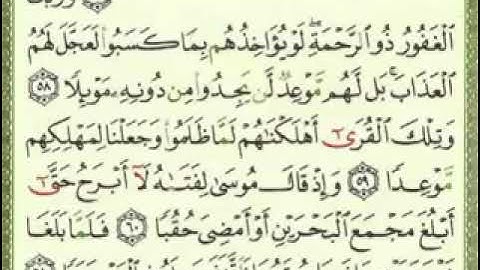 ٱلْغَفُورُ ذُو ٱلرَّحْمَةِ ۖ لَوْ يُؤَاخِذُهُم بِمَا كَسَبُوا۟ لَعَجَّلَ لَهُمُ
ٱلْعَذَابَ ۚ بَل لَّهُم مَّوْعِدٌ لَّن يَجِدُوا۟ مِن دُونِهِۦ مَوْئِلًا ٥٨
وَتِلْكَ ٱلْقُرَىٰٓ أَهْلَكْنَٰهُمْ لَمَّا ظَلَمُوا۟ وَجَعَلْنَا لِمَهْلِكِهِم
مَّوْعِدًا ٥٩ وَإِذْ قَالَ مُوسَىٰ لِفَتَىٰهُ لَآ أَبْرَحُ حَتَّىٰٓ
أَبْلُغَ مَجْمَعَ ٱلْبَحْرَيْنِ أَوْ أَمْضِىَ حُقُبًا ٦٠ فَلَمَّا بَلَغَا